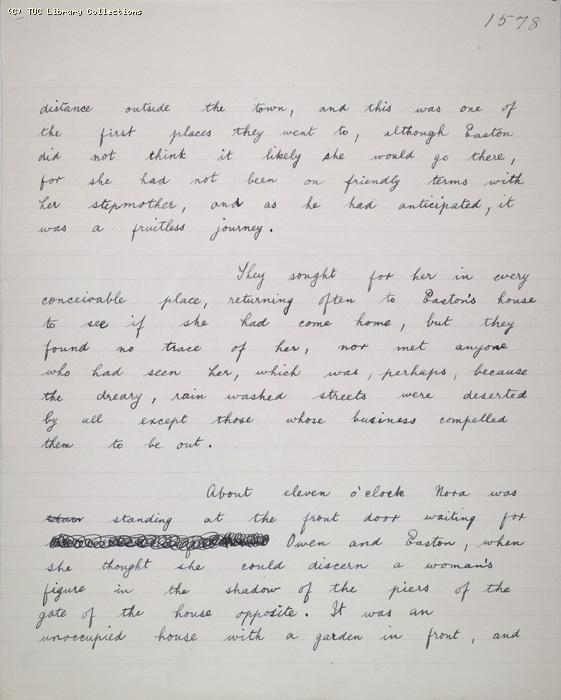 (C) TUC Library Collections
1578
distance outside the town, and this was one of
the first places they went to, although Easton
did not think it likely she would go there,
for she had not been on friendly terms with
her stepmother, and as he had anticipated, it
was a fruitless journey.
They sought for her in every
conceivable place, returning often to Easton's house
to see if she had come home, but they
found no trace of her, nor met anyone
who had seen her, which was, perhaps, because
the dreary, rain washed streets were deserted
by all except those whose business compelled
them to be out.
About eleven o'clock Nora was
standing at the front door waiting for
Owen and Easton, when
she thought she could discern a woman's
figure in the shadow of the piers of the
gate of the house opposite. It was an
unoccupied house with a garden in front, and